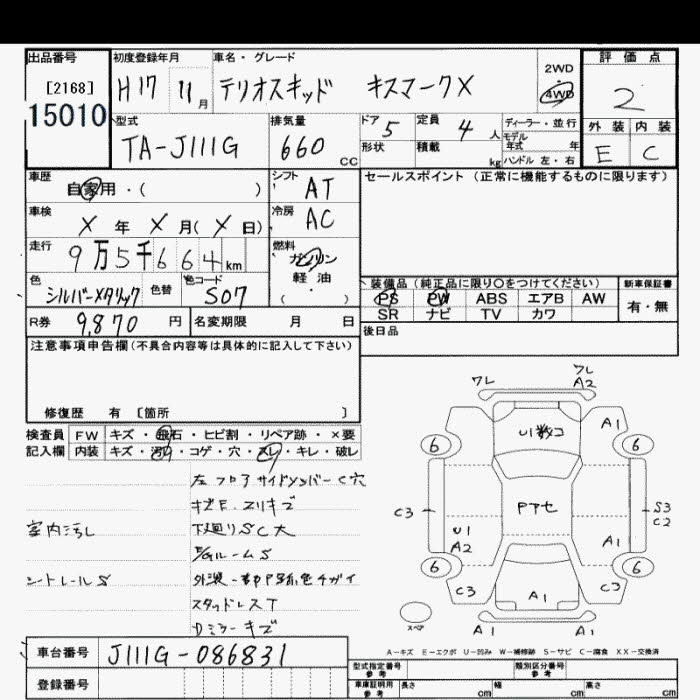 出品番号 初度登録年月 車名・グレード 評価点
[2168] H17 11月 テリオスキッド キスマークX 2WD 4WD 2
15010
型式 排気量 ドア 5 定員 4人 ディーラー・並行 外装 内装
TA-J111G 660 CC 形状 積載 kg モデル年式 年 ハンドル 左・右 E C
車歴 シフト セールスポイント (正常に機能するものに限ります)
自家用・( ) AT
車検 冷房
X 年 X 月(X 日) AC
走行 燃料
9万5千664km ガソリン
軽油
色 色替 色コード ( ・ ) 装備品 (純正品に限り○をつけてください) 新車保証書
シルバーメタリック S07 PS PW ABS エアB AW 有・無
R券 9,870 円 名変期限 月 日 SR ナビ TV カワ
注意事項申告欄 (不具合内容等は具体的に記入して下さい) 後日品
修復歴 有 〔箇所 〕
検査員 FW キズ・飛石・ヒビ割・リペア跡・×要
記入欄 内装 キズ・汚レ・コゲ・穴・スレ・キレ・破レ
左フロアサイドメンバーC穴
室内汚レ 下廻りSC大
シートレールS E/GルームS
スタッドレスT
Dミラーキズ
ワレ ワレ A2
U1数コ A1
6 6
C3 Pアセ S3 C2
U1 A2 A1
6 6
C3 A1 C3
スペア A1 A1
A-キズ E-エクボ U-凹み W-補修跡 S-サビ C-腐食 XX-交換済
車台番号 J111G-086831 型式指定番号 参考 類別区分番号 参考
登録番号 車庫証明用 参考 長さ cm 幅 cm 高さ cm